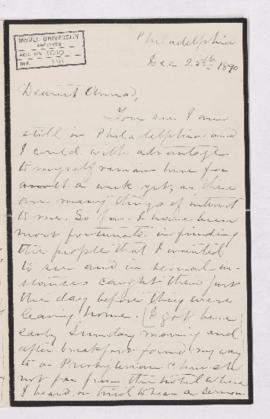 McGILL UNIVERSITY
ARCHIVES
ACC. NO. 1070
REF.
Philadelphia
Dec 28th 1890
Dearest Anna,
You see I am
still in Philadelphia and
I could with advantage
to myself remain here for
a week yet, as there
are many things of interest
to me. So far I have been
most fortunate in finding
the people that I wanted
to see and in several in-
stances caught them just
the day before they were
leaving home. I got here
early Sunday morning and
after breakfast found my way
to a Presbyterian church
not far from the hotel where
I heard, or tried to hear a sermon.